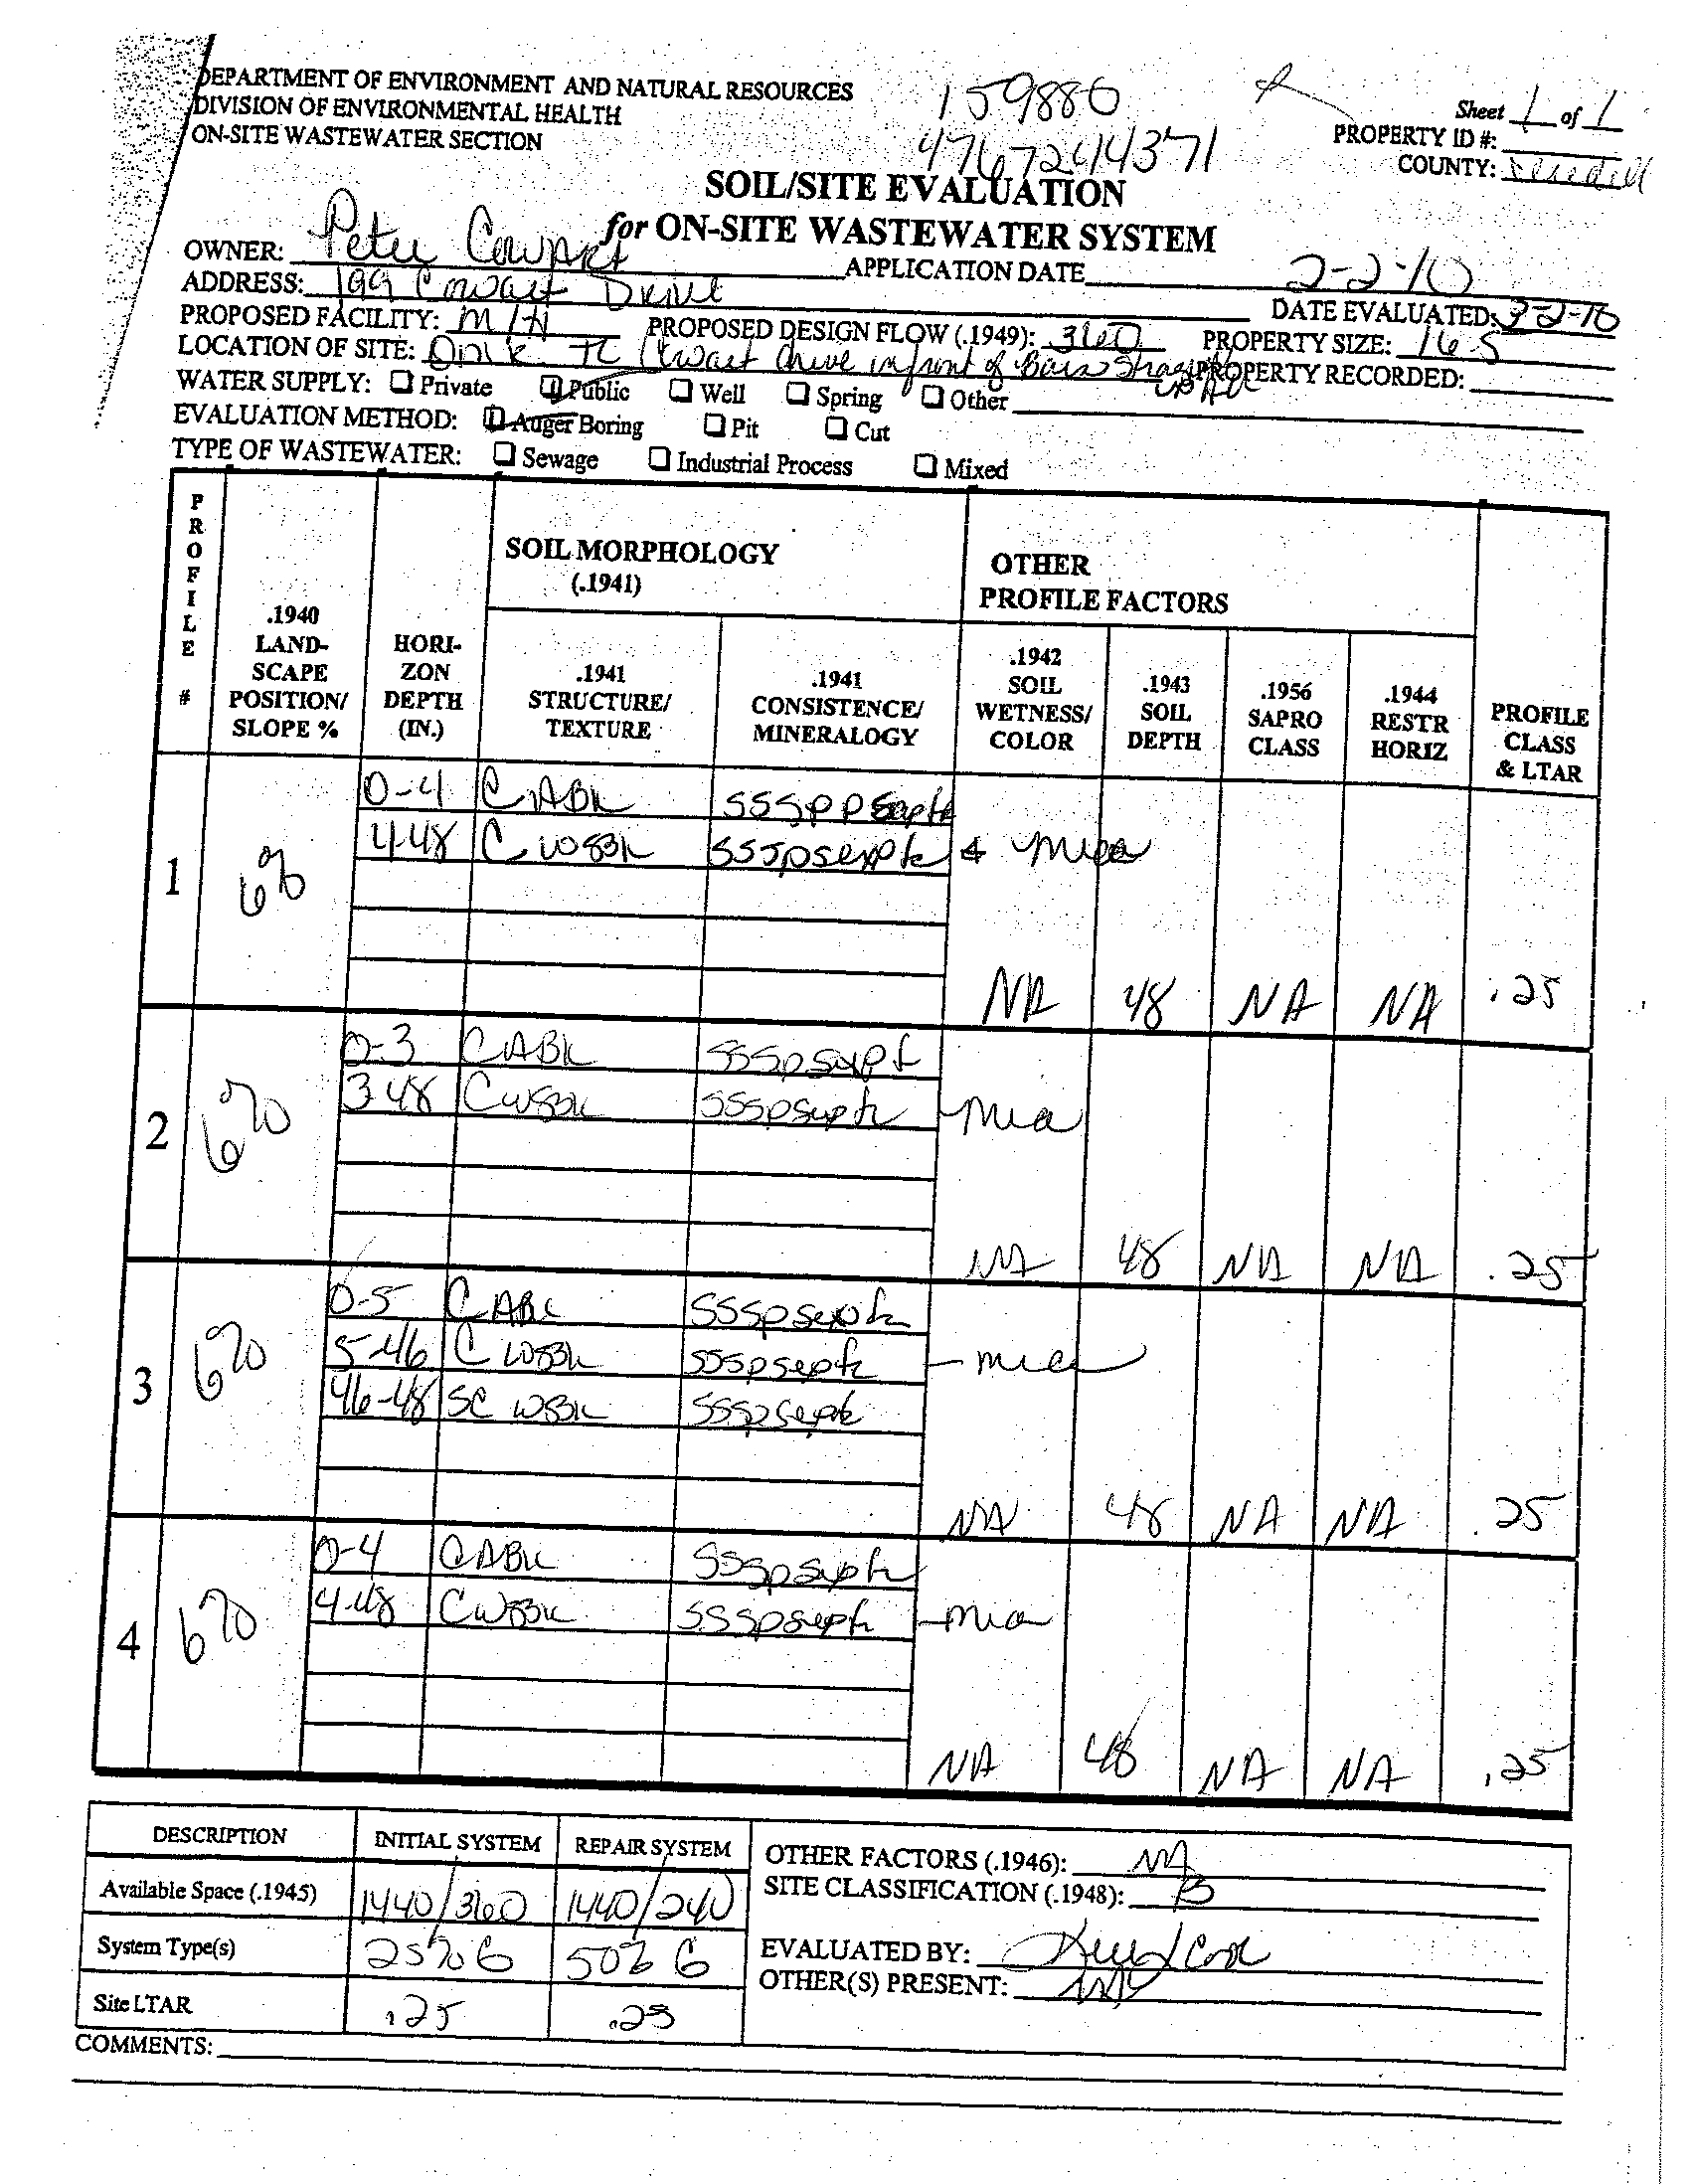 DEPARTMENT OF ENVIRONMENT AND NATURAL RESOURCES
DIVISION OF ENVIRONMENTAL HEALTH
ON-SITE WASTEWATER SECTION
159886
4767244371
Sheet 1 of 1
PROPERTY ID #:
COUNTY: Iredell
SOIL/SITE EVALUATION
for ON-SITE WASTEWATER SYSTEM
OWNER: Pete Cowart
APPLICATION DATE 2-2-10
ADDRESS: 199 Cowart Drive
DATE EVALUATED: 2-2-10
PROPOSED FACILITY: M/H PROPOSED DESIGN FLOW (.1949): 360 PROPERTY SIZE: 16.5
LOCATION OF SITE: Cowart drive in front of PROPERTY RECORDED:
WATER SUPPLY: Private Public Well Spring Other
EVALUATION METHOD: Auger Boring Pit Cut
TYPE OF WASTEWATER: Sewage Industrial Process Mixed
PROFILE #
.1940 LAND-SCAPE POSITION/ SLOPE %
HORI-ZON DEPTH (IN.)
SOIL MORPHOLOGY (.1941)
.1941 STRUCTURE/ TEXTURE
.1941 CONSISTENCE/ MINERALOGY
OTHER PROFILE FACTORS
.1942 SOIL WETNESS/ COLOR
.1943 SOIL DEPTH
.1956 SAPRO CLASS
.1944 RESTR HORIZ
PROFILE CLASS & LTAR
1 6%
0-4 C ABK
4-48 C WSBK mica
NA 48 NA NA .25
2 6%
0-3 C ABK
3-48 C WSBK - mica
NA 48 NA NA .25
3 6%
0-5 C ABK
5-46 C WSBK - mica
46-48 SC WSBK
NA 48 NA NA .25
4 6%
0-4 C ABK
4-48 C WSBK - mica
NA 48 NA NA .25
DESCRIPTION INITIAL SYSTEM REPAIR SYSTEM
Available Space (.1945) 1440/360 1440/240
System Type(s) 25% G 50% G
Site LTAR .25 .25
OTHER FACTORS (.1946): NA
SITE CLASSIFICATION (.1948):
EVALUATED BY:
OTHER(S) PRESENT:
COMMENTS: